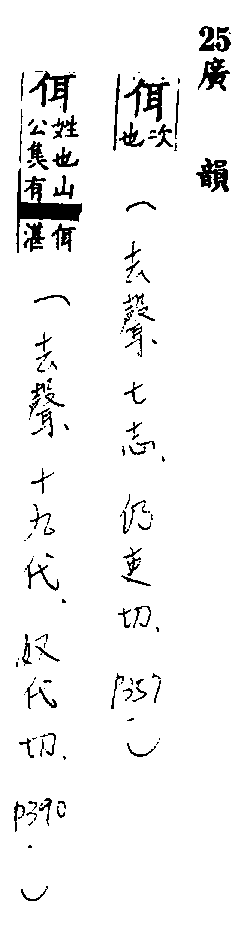 25廣韻
佴次也(去聲、七志、仍吏切、P357.)
佴姓也山公集有佴湛(去聲、十九代、奴代切、P390.)